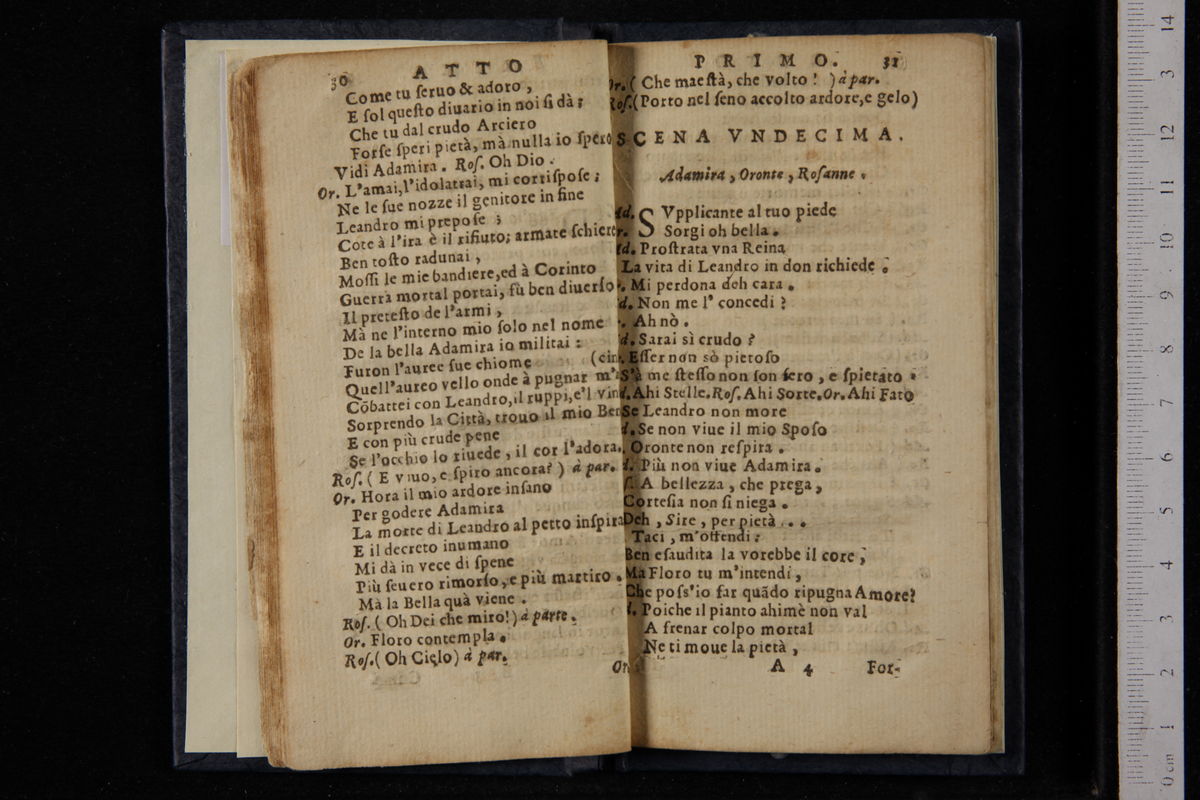 30 ATTO
Come tu ſeruo & adoro,
E ſol queſto diuario in noi ſi dà;
Che tu dal crudo Arciero
Forſe ſperi pietà, mà nulla io ſpero
Vidi Adamira. Roſ. Oh Dio.
Or. L'amai, l'idolatrai, mi corriſpoſe;
Ne le ſue nozze il genitore in fine
Leandro mi prepoſe;
Cote à l'ira è il rifiuto; armate ſchiere
Ben toſto radunai,
Moſſi le mie bandiere, ed à Corinto
Guerra mortal portai, fù ben diuerſo
Il preteſto de l'armi,
Mà ne l'interno mio ſolo nel nome
De la bella Adamira io militai:
Furon l'auree ſue chiome (cin
Quell'aureo vello onde à pugnar m'
Cõbattei con Leandro, il ruppi, e'l vin
Sorprendo la Città, trouo il mio Ben
E con più crude pene
Se l'occhio lo riuede, il cor l'adora.
Roſ. (E viuo, e ſpiro ancora?) à par.
Or. Hora il mio ardore inſano
Per godere Adamira
La morte di Leandro al petto inſpira
E il decreto inumano
Mi dà in vece di ſpene
Più ſeuero rimorſo, e più martiro.
Mà la Bella quà viene.
Roſ. (Oh Dei che miro!) à parte.
Or. Floro contempla.
Roſ. (Oh Cielo) à par.
Or.
PRIMO. 31
Or. (Che maeſtà, che volto!) à par.
Roſ. (Porto nel ſeno accolto ardore, e gelo)
SCENA VNDECIMA.
Adamira, Oronte, Roſanne.
Ad. SVpplicante al tuo piede
r. Sorgi oh bella.
d. Proſtrata vna Reina
La vita di Leandro in don richiede.
r. Mi perdona deh cara.
d. Non me l' concedi?
r. Ah nò.
d. Sarai sì crudo?
r. Eſſer non sò pietoſo
S'à me ſteſſo non ſon fero, e ſpietato.
d. Ahi Stelle. Roſ. Ahi Sorte. Or. Ahi Fato
Se Leandro non more
d. Se non viue il mio Spoſo
Oronte non reſpira.
d. Più non viue Adamira.
ſ. A bellezza, che prega,
Corteſia non ſi niega.
Deh, Sire, per pietà...
Taci, m'offendi:
Ben eſaudita la vorebbe il core;
Ma Floro tu m'intendi,
Che poſs'io far quãdo ripugna Amore?
d. Poiche il pianto ahimè non val
A frenar colpo mortal
Ne ti moue la pietà,
A 4 For-